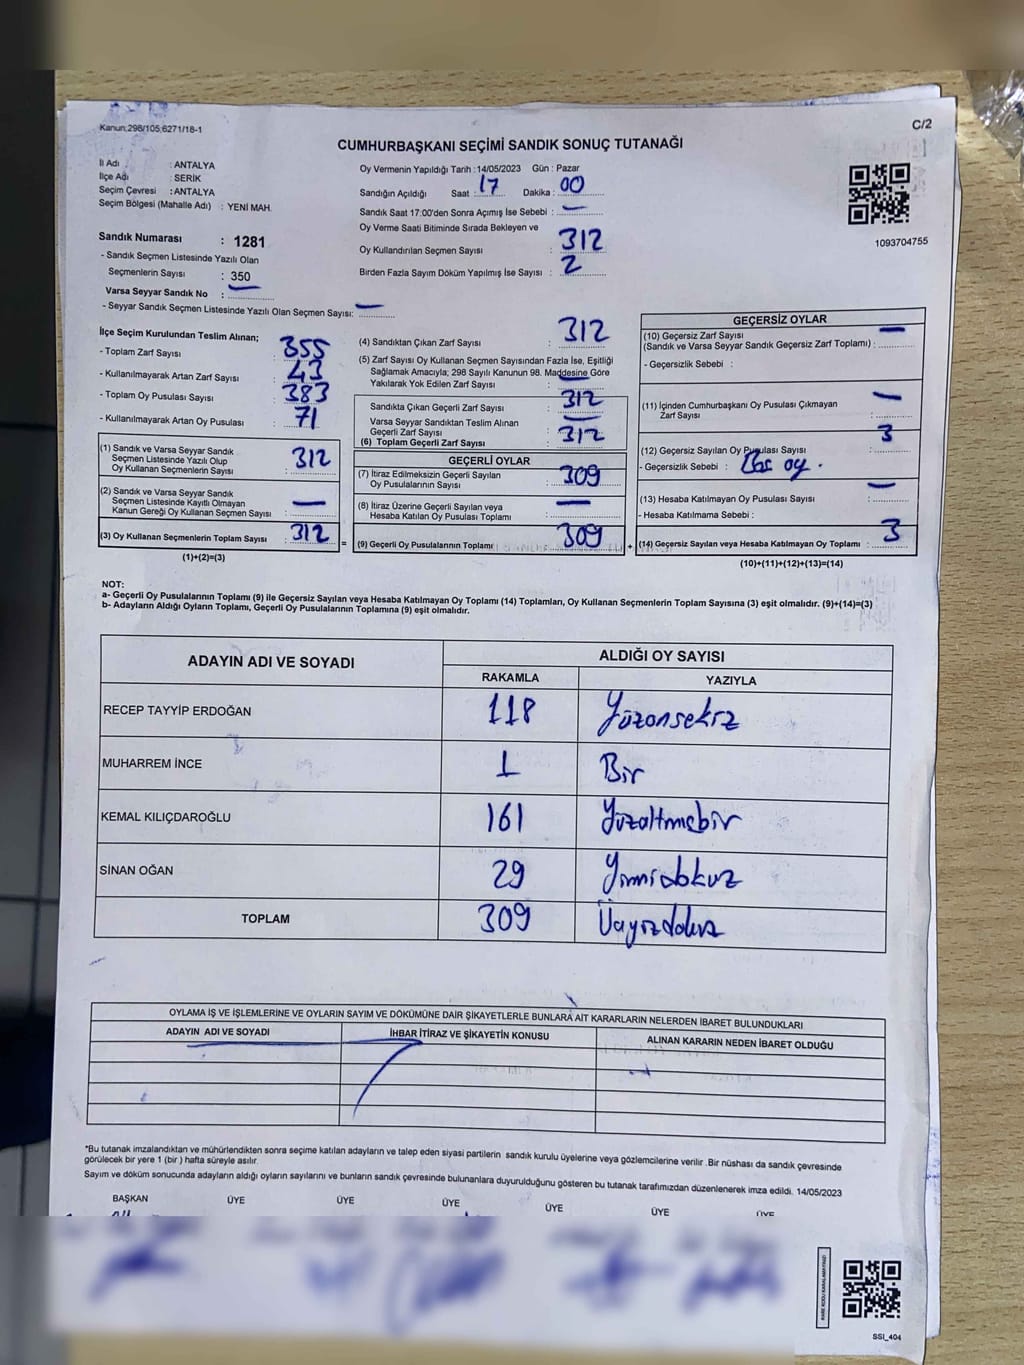 Kanun;298/105;6271/18-1
C/2
CUMHURBAŞKANI SEÇİMİ SANDIK SONUÇ TUTANAĞI
İl Adı : ANTALYA
İlçe Adı : SERİK
Seçim Çevresi : ANTALYA
Seçim Bölgesi (Mahalle Adı) : YENİ MAH.
Sandık Numarası : 1281
- Sandık Seçmen Listesinde Yazılı Olan
Seçmenlerin Sayısı : 350
Varsa Seyyar Sandık No : —
- Seyyar Sandık Seçmen Listesinde Yazılı Olan Seçmen Sayısı: —
Oy Vermenin Yapıldığı Tarih : 14/05/2023 Gün : Pazar
Sandığın Açıldığı Saat : 17 Dakika : 00
Sandık Saat 17:00'den Sonra Açımış İse Sebebi : —
Oy Verme Saati Bitiminde Sırada Bekleyen ve
Oy Kullandırılan Seçmen Sayısı : 312
Birden Fazla Sayım Döküm Yapılmış İse Sayısı : 2
1093704755
İlçe Seçim Kurulundan Teslim Alınan;
- Toplam Zarf Sayısı : 355
- Kullanılmayarak Artan Zarf Sayısı : 43
- Toplam Oy Pusulası Sayısı : 383
- Kullanılmayarak Artan Oy Pusulası : 71
(1) Sandık ve Varsa Seyyar Sandık
Seçmen Listesinde Yazılı Olup
Oy Kullanan Seçmenlerin Sayısı : 312
(2) Sandık ve Varsa Seyyar Sandık
Seçmen Listesinde Kayıtlı Olmayan
Kanun Gereği Oy Kullanan Seçmen Sayısı : —
(3) Oy Kullanan Seçmenlerin Toplam Sayısı : 312
(1)+(2)=(3)
(4) Sandıktan Çıkan Zarf Sayısı : 312
(5) Zarf Sayısı Oy Kullanan Seçmen Sayısından Fazla İse, Eşitliği
Sağlamak Amacıyla; 298 Sayılı Kanunun 98. Maddesine Göre
Yakılarak Yok Edilen Zarf Sayısı : —
Sandıkta Çıkan Geçerli Zarf Sayısı : 312
Varsa Seyyar Sandıktan Teslim Alınan
Geçerli Zarf Sayısı : —
(6) Toplam Geçerli Zarf Sayısı : 312
GEÇERLİ OYLAR
(7) İtiraz Edilmeksizin Geçerli Sayılan
Oy Pusulalarının Sayısı : 309
(8) İtiraz Üzerine Geçerli Sayılan veya
Hesaba Katılan Oy Pusulası Toplamı : —
= (9) Geçerli Oy Pusulalarının Toplamı : 309
GEÇERSİZ OYLAR
(10) Geçersiz Zarf Sayısı
(Sandık ve Varsa Seyyar Sandık Geçersiz Zarf Toplamı) : —
- Geçersizlik Sebebi :
(11) İçinden Cumhurbaşkanı Oy Pusulası Çıkmayan
Zarf Sayısı : —
(12) Geçersiz Sayılan Oy Pusulası Sayısı : 3
- Geçersizlik Sebebi : Boş oy.
(13) Hesaba Katılmayan Oy Pusulası Sayısı : —
- Hesaba Katılmama Sebebi :
+ (14) Geçersiz Sayılan veya Hesaba Katılmayan Oy Toplamı : 3
(10)+(11)+(12)+(13)=(14)
NOT:
a- Geçerli Oy Pusulalarının Toplamı (9) ile Geçersiz Sayılan veya Hesaba Katılmayan Oy Toplamı (14) Toplamları, Oy Kullanan Seçmenlerin Toplam Sayısına (3) eşit olmalıdır. (9)+(14)=(3)
b- Adayların Aldığı Oyların Toplamı, Geçerli Oy Pusulalarının Toplamına (9) eşit olmalıdır.
ADAYIN ADI VE SOYADI ALDIĞI OY SAYISI
RAKAMLA YAZIYLA
RECEP TAYYİP ERDOĞAN 118 Yüzonsekiz
MUHARREM İNCE 1 Bir
KEMAL KILIÇDAROĞLU 161 Yüzaltmışbir
SİNAN OĞAN 29 Yirmidokuz
TOPLAM 309 Üçyüzdokuz
OYLAMA İŞ VE İŞLEMLERİNE VE OYLARIN SAYIM VE DÖKÜMÜNE DAİR ŞİKAYETLERLE BUNLARA AİT KARARLARIN NELERDEN İBARET BULUNDUKLARI
ADAYIN ADI VE SOYADI İHBAR İTİRAZ VE ŞİKAYETİN KONUSU ALINAN KARARIN NEDEN İBARET OLDUĞU
*Bu tutanak imzalandıktan ve mühürlendikten sonra seçime katılan adayların ve talep eden siyasi partilerin sandık kurulu üyelerine veya gözlemcilerine verilir .Bir nüshası da sandık çevresinde
görülecek bir yere 1 (bir ) hafta süreyle asılır.
Sayım ve döküm sonucunda adayların aldığı oyların sayılarını ve bunların sandık çevresinde bulunanlara duyurulduğunu gösteren bu tutanak tarafımızdan düzenlenerek imza edildi. 14/05/2023
BAŞKAN ÜYE ÜYE ÜYE ÜYE ÜYE ÜYE
SSI_404